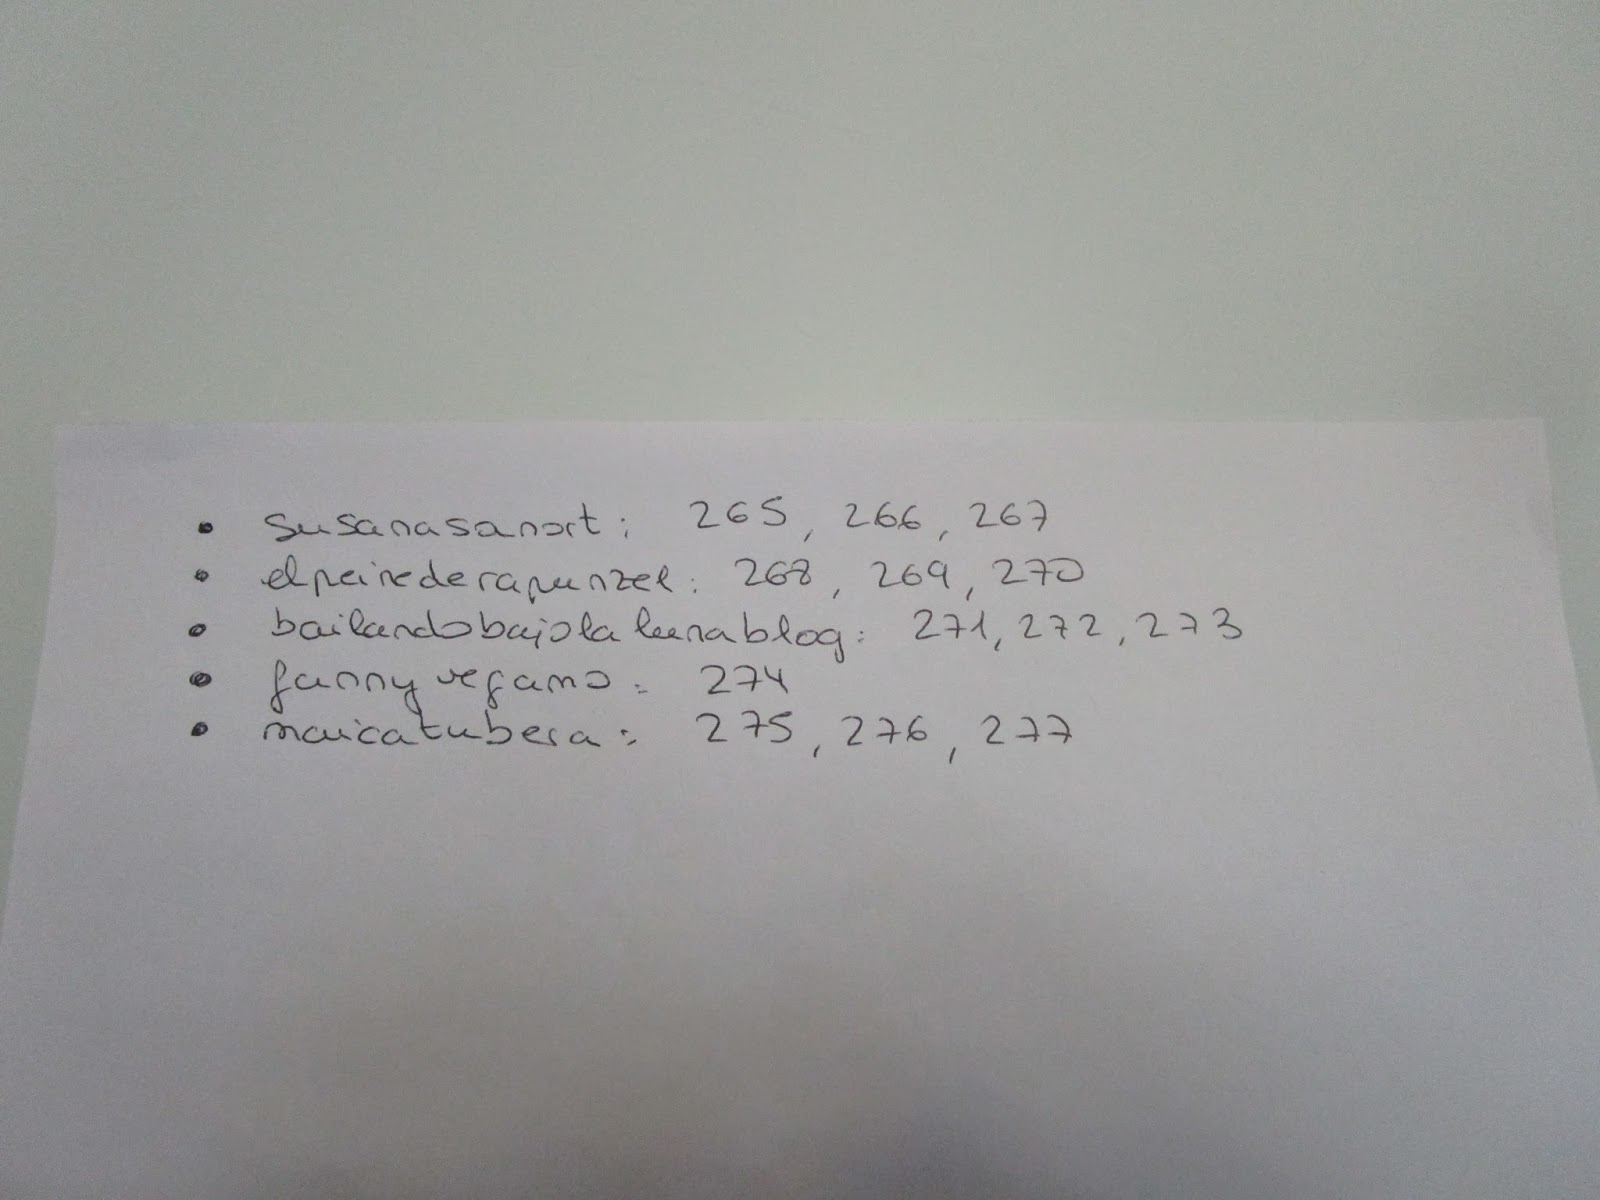 • susanasanort: 265, 266, 267
• elpeinederapunzel: 268, 269, 270
• bailandobajolalunablog: 271, 272, 273
• fannyvegamo: 274
• maicatubera: 275, 276, 277